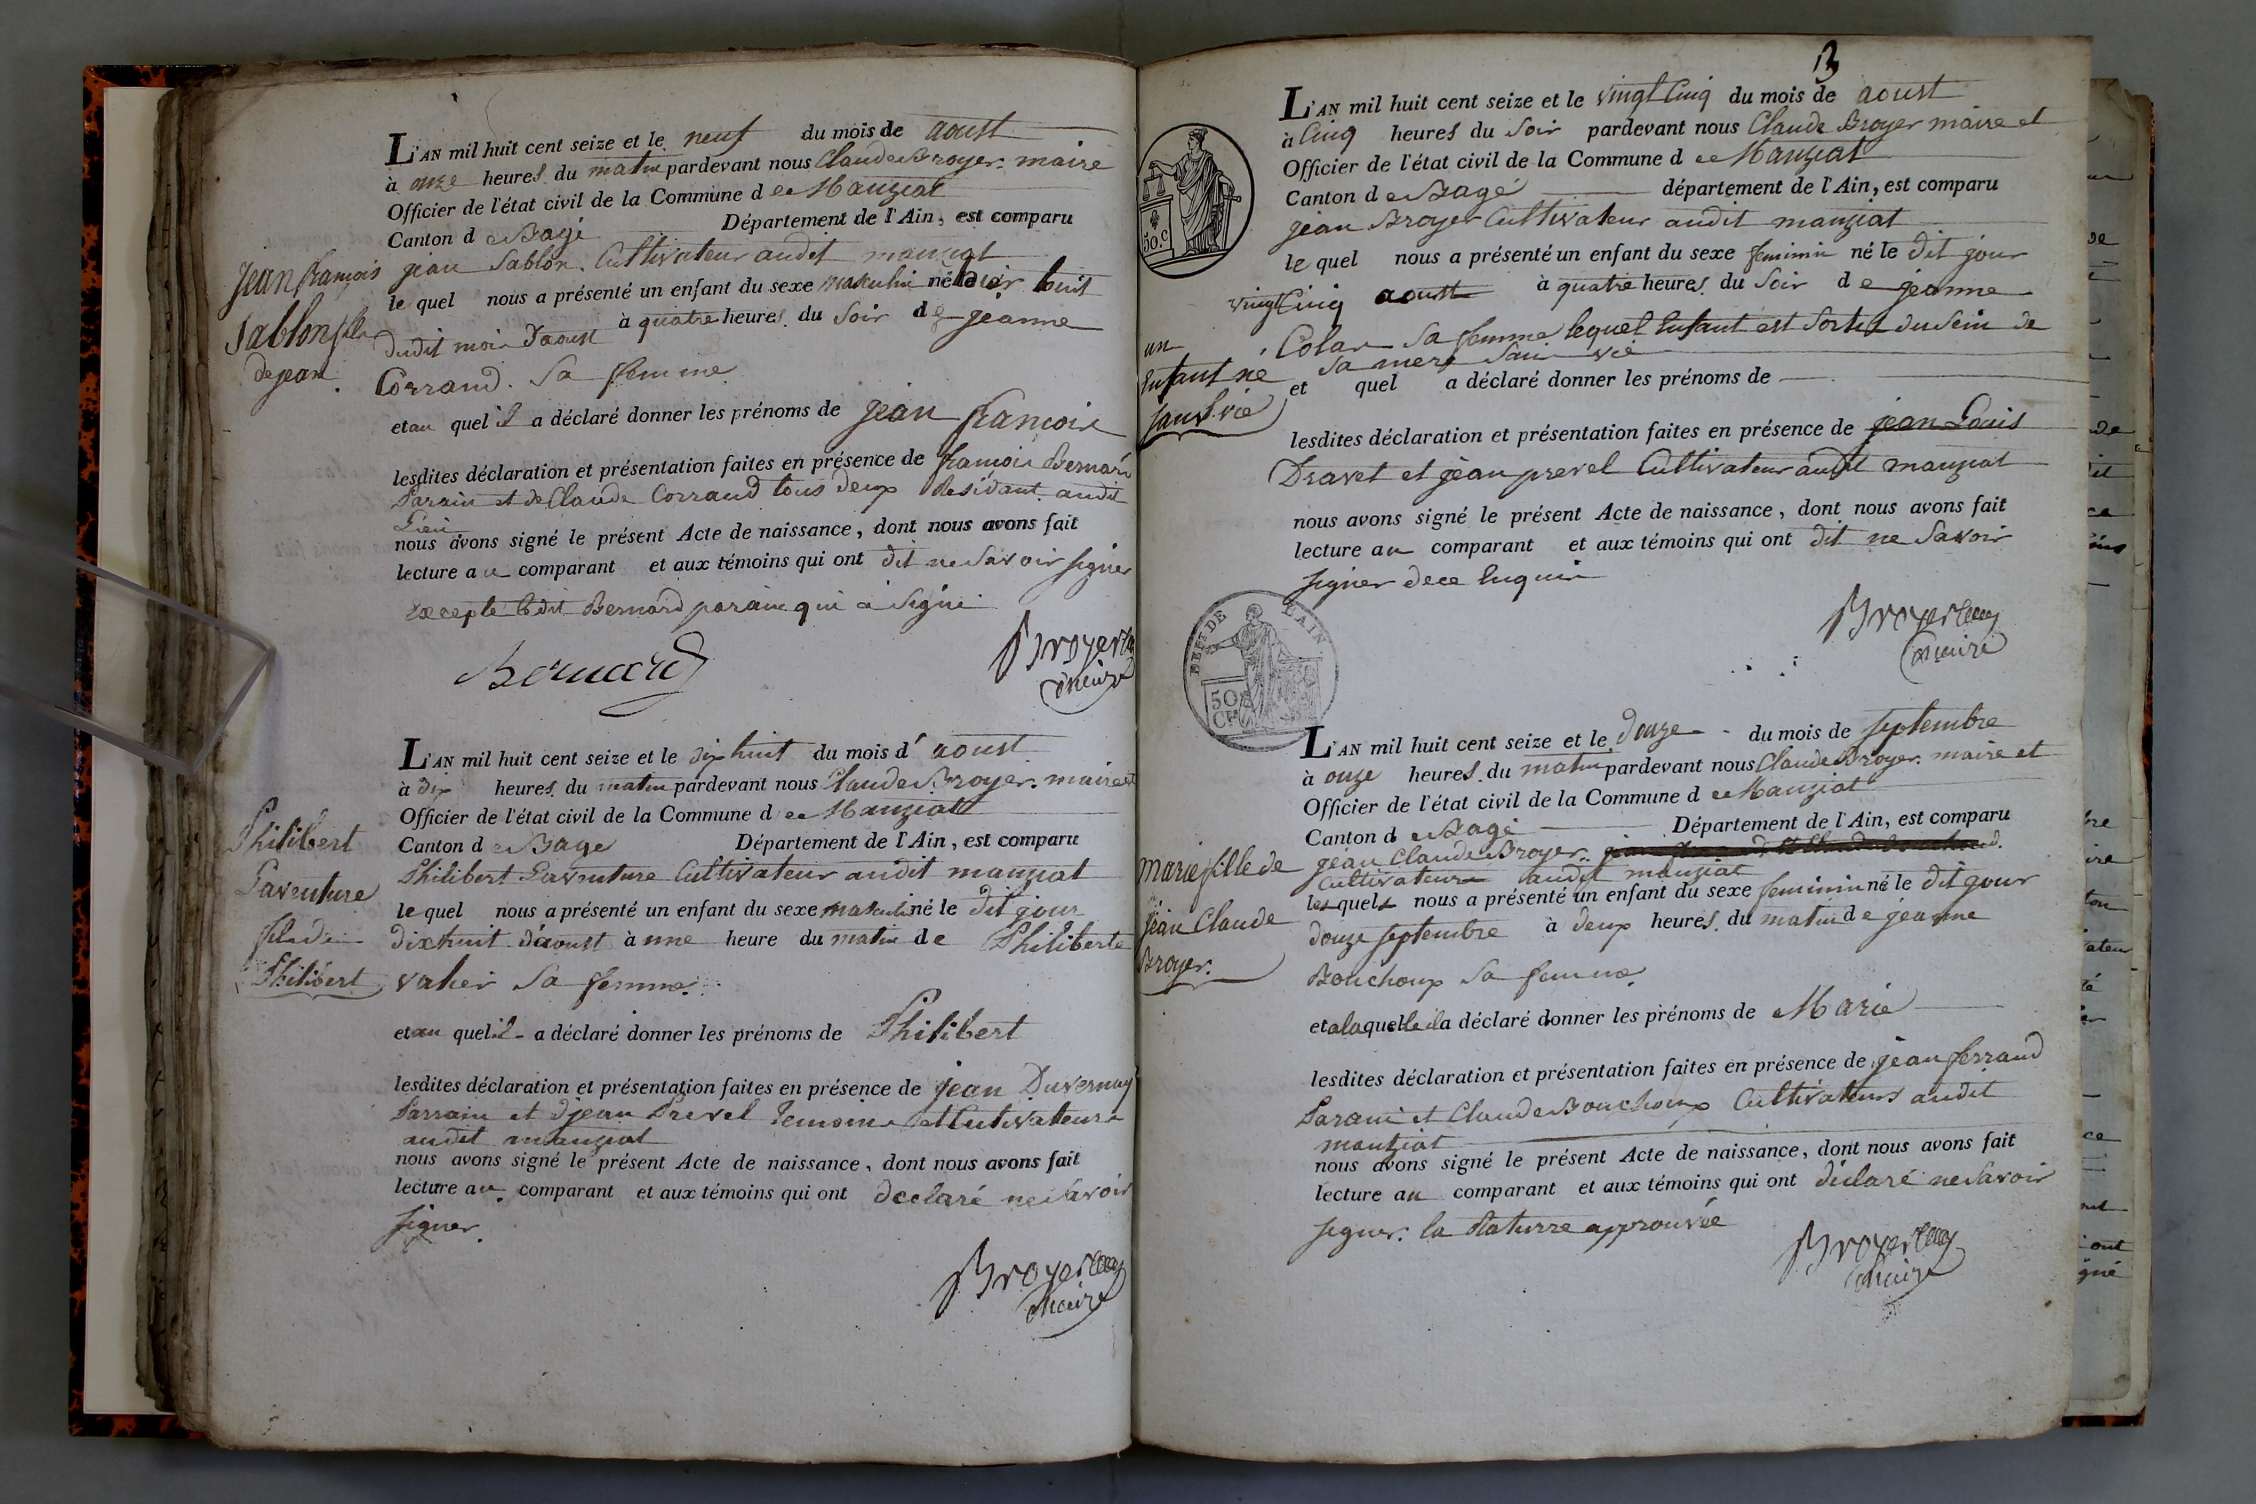 L'AN mil huit cent seize et le neuf du mois de aoust
à onze heures du matin pardevant nous Claude Broyer maire
Officier de l'état civil de la Commune de Manziat
Canton de Bagé Département de l'Ain, est comparu
jean Sablon Cultivateur audit manziat
le quel nous a présenté un enfant du sexe masculin né hier huit
dudit mois d'aoust à quatre heures du Soir de jeanne
Corrand Sa femme
et au quel il a déclaré donner les prénoms de jean françois
lesdites déclaration et présentation faites en présence de françois Bernard
Parain et de Claude Corrand tous deux Residant audit
Lieu
nous avons signé le présent Acte de naissance, dont nous avons fait
lecture au comparant et aux témoins qui ont dit ne Savoir signer
excepté ledit Bernard parain qui a Signé
Bernard
Broyer
maire
jean françois
Sablon fils
de jean
L'AN mil huit cent seize et le dix huit du mois d'aoust
à dix heures du matin pardevant nous Claude Broyer maire et
Officier de l'état civil de la Commune de Manziat
Canton de Bage Département de l'Ain, est comparu
Philibert Laventure Cultivateur audit manziat
le quel nous a présenté un enfant du sexe masculin né le dit jour
dixhuit d'aoust à une heure du matin de Philiberte
Sa femme
et au quel il a déclaré donner les prénoms de Philibert
lesdites déclaration et présentation faites en présence de jean Duvernay
Parrain et djean Prevel Temoins et Cultivateurs
audit manziat
nous avons signé le présent Acte de naissance, dont nous avons fait
lecture au comparant et aux témoins qui ont declaré ne Savoir
signer
Broyer
maire
Philibert
Laventure
fils de
Philibert
13
L'AN mil huit cent seize et le vingt Cinq du mois de aoust
à Cinq heures du Soir pardevant nous Claude Broyer maire et
Officier de l'état civil de la Commune de Manziat
Canton de Bagé département de l'Ain, est comparu
jean Broyer Cultivateur audit manziat
le quel nous a présenté un enfant du sexe feminin né le dit jour
vingt Cinq aoust à quatre heures du Soir de jeanne
Colas Sa femme lequel Enfant est Sortie du Sein de
Sa mere Sans vie
et quel a déclaré donner les prénoms de
lesdites déclaration et présentation faites en présence de jean Louis
Dravet et jean prevel Cultivateur audit manziat
nous avons signé le présent Acte de naissance, dont nous avons fait
lecture au comparant et aux témoins qui ont dit ne Savoir
signer dece Enquis
Broyer
maire
un
Enfant né
sans vie
50.C
DEPT DE L'AIN
50
L'AN mil huit cent seize et le douze du mois de septembre
à onze heures du matin pardevant nous Claude Broyer maire et
Officier de l'état civil de la Commune de Manziat
Canton de Bagé Département de l'Ain, est comparu
jean Claude Broyer
Cultivateur audit manziat
lequel nous a présenté un enfant du sexe feminin né le dit jour
douze septembre à deux heures du matin de jeanne
Bouchoux Sa femme
et a laquelle il a déclaré donner les prénoms de Marie
lesdites déclaration et présentation faites en présence de jean ferrand
Parain et Claude Bouchoux Cultivateurs audit
mantziat
nous avons signé le présent Acte de naissance, dont nous avons fait
lecture au comparant et aux témoins qui ont déclaré ne Savoir
signer. la Raturre approuvée
Broyer
maire
marie fille de
jean Claude
Broyer.